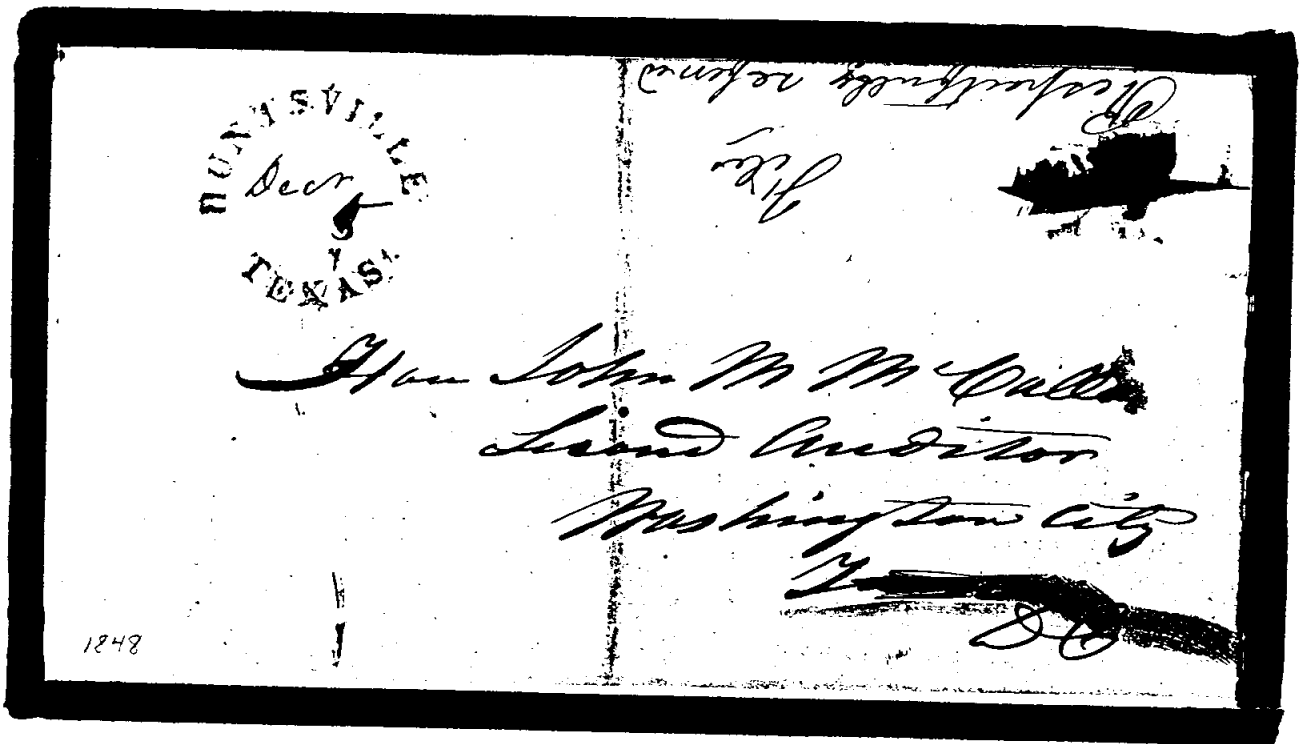 HUNTSVILLE
Decr
TEXAS
Respectfully referred
File
Hon John M McCalla
Second Auditor
Washington City
DC
1848